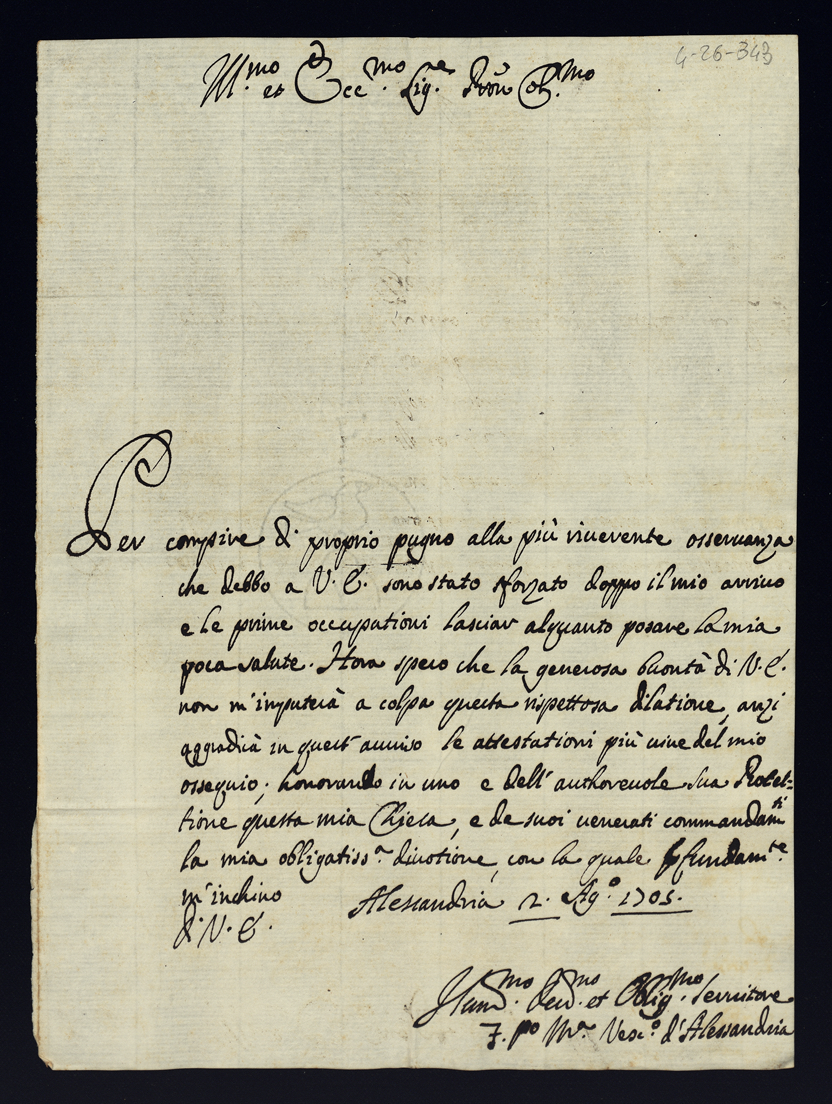 4-26-343
Ill.mo et Ecc.mo Sig.re Pron Col.mo
Per compire di proprio pugno alla più riuerente osseruanza
che debbo a V. E. sono stato sforzato doppo il mio arriuo
e le prime occupationi lasciar alquanto posare la mia
poca salute. Hora spero che la generosa bontà di V. E.
non m'imputerà a colpa questa rispettosa dilatione, anzi
aggradirà in quest'auuiso le attestationi più uiue del mio
ossequio; honorando in uno e dell'authoreuole sua Protet=
tione questa mia Chiesa, e de suoi uenerati commandam.ti
la mia obligatiss.a diuotione, con la quale pfundam.te
m'inchino
Alessandria 2. Ag.o 1705.
di V. E.
Hum.mo Deu.mo et Oblig.mo Seruitore
F. M.a Vesc.o d'Alessandria